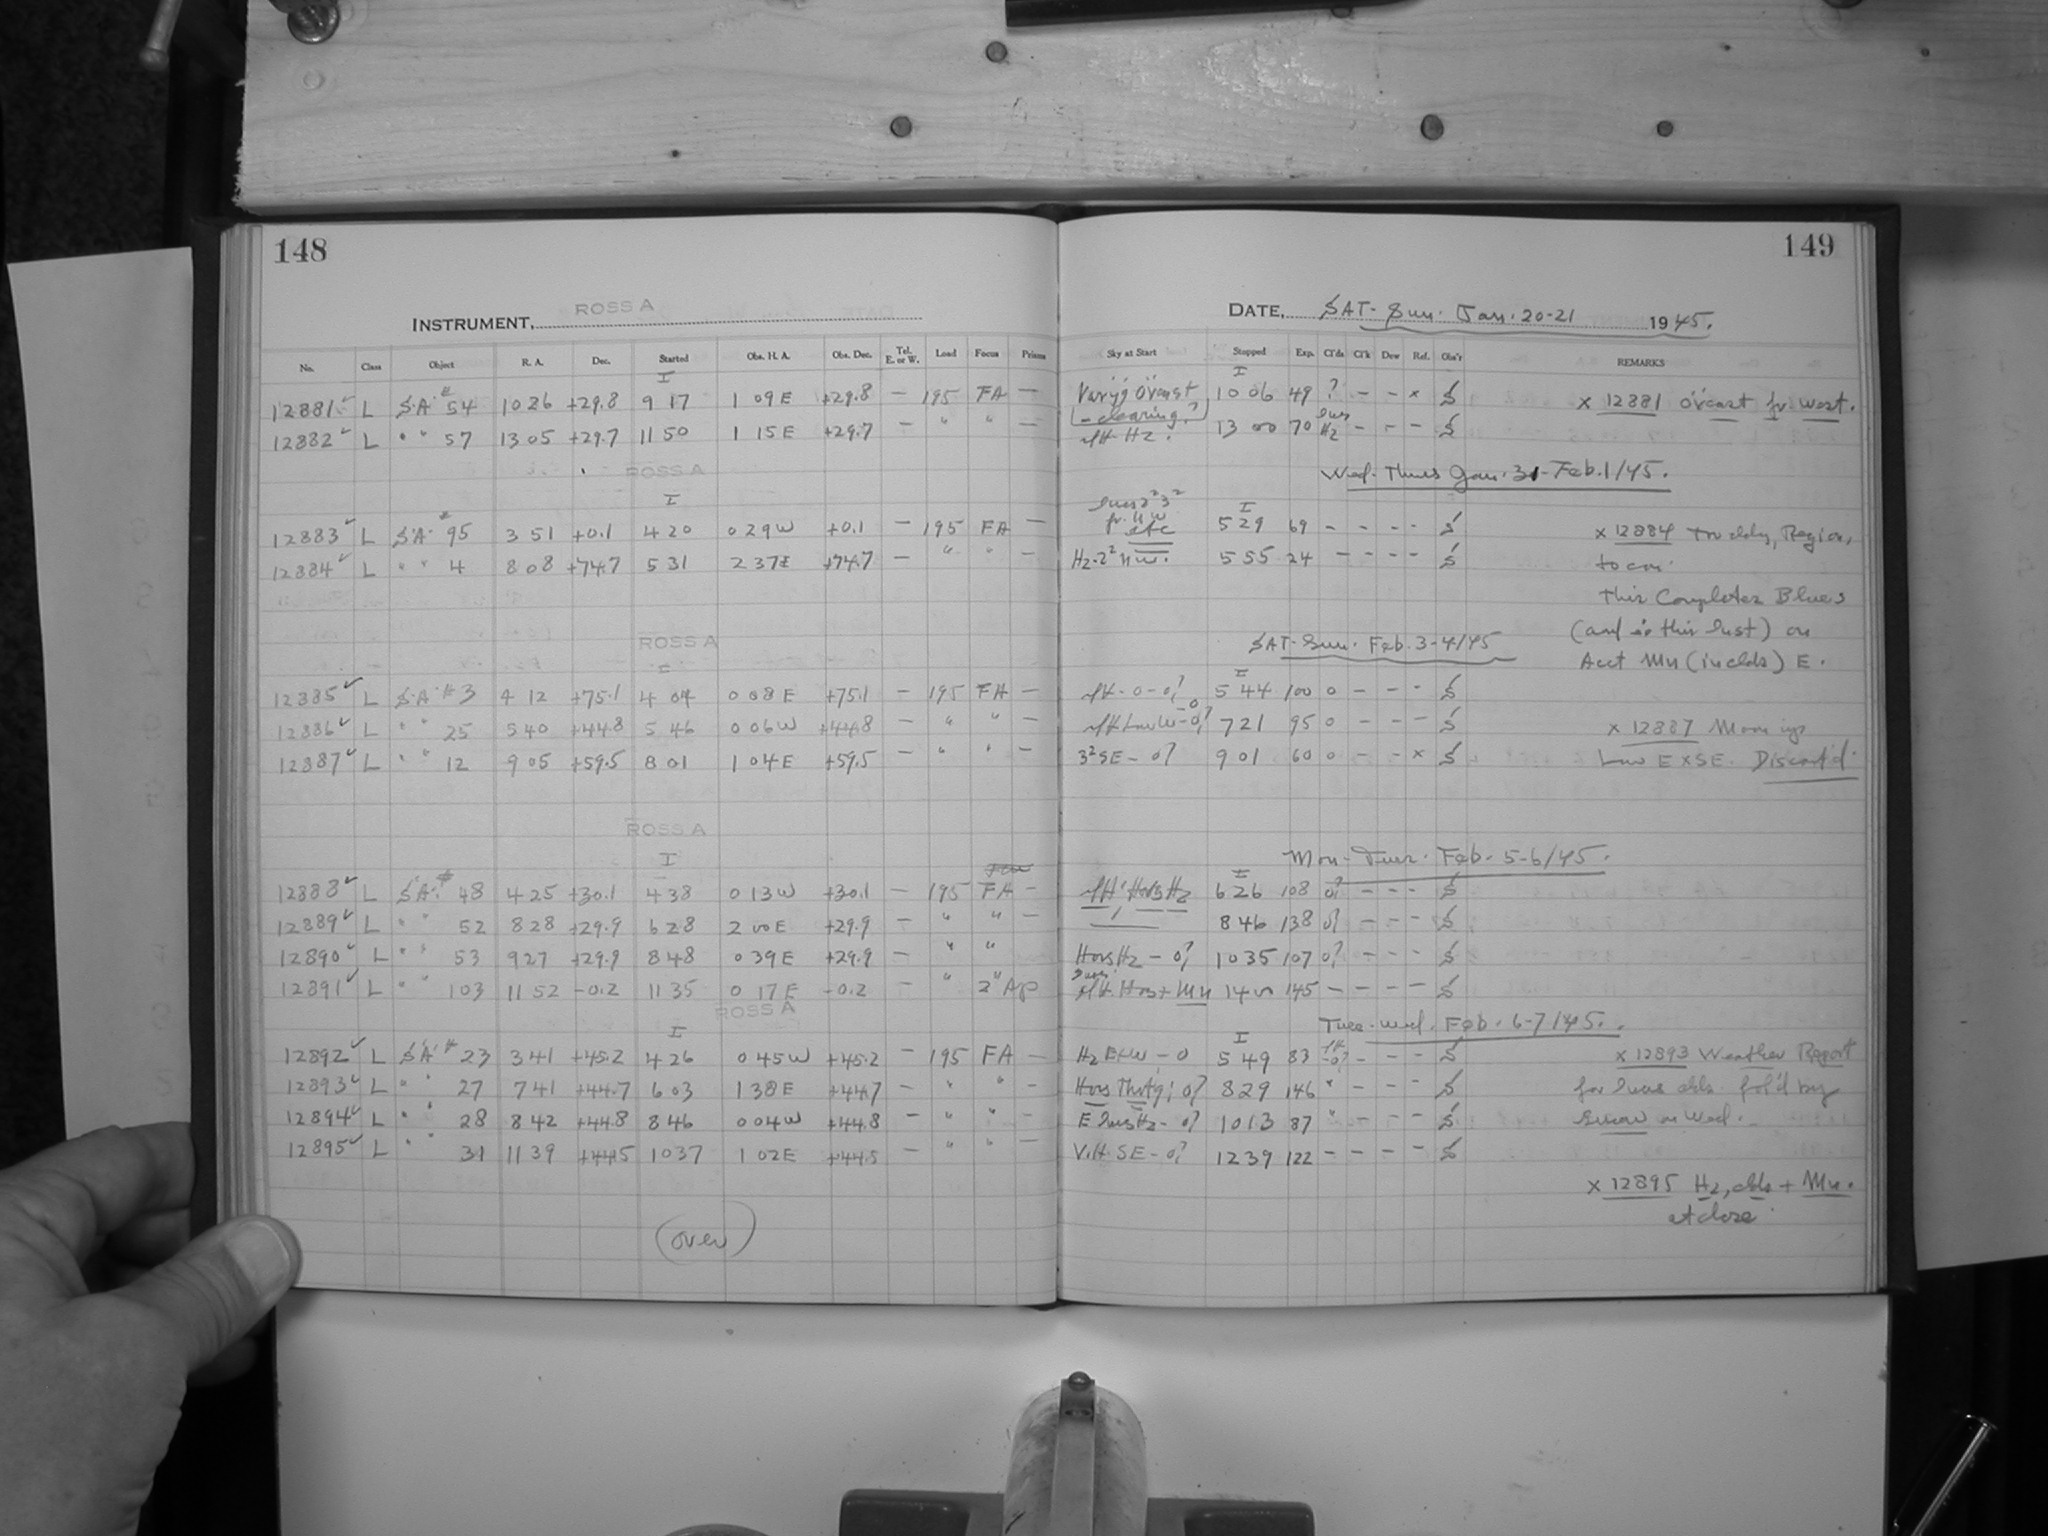 148
INSTRUMENT, ROSS A
No. Class Object R. A. Dec. Started Obs. H. A. Obs. Dec. Tel. E. or W. Load Focus Prisms
I
12881 ✓ L S.A. # 54 10 26 +29.8 9 17 1 09 E +29.8 — 195 FA —
12882 ✓ L " " 57 13 05 +29.7 11 50 1 15 E +29.7 — " " —
ROSS A
I
12883 ✓ L S.A. # 95 3 51 +0.1 4 20 0 29 W +0.1 — 195 FA —
12884 ✓ L " " 4 8 08 +74.7 5 31 2 37 E +74.7 — " " —
ROSS A
I
12885 ✓ L S.A. # 3 4 12 +75.1 4 04 0 08 E +75.1 — 195 FA —
12886 ✓ L " " 25 5 40 +44.8 5 46 0 06 W +44.8 — " " —
12887 ✓ L " " 12 9 05 +59.5 8 01 1 04 E +59.5 — " " —
ROSS A
I
12888 ✓ L S.A. # 48 4 25 +30.1 4 38 0 13 W +30.1 — 195 FA —
12889 ✓ L " " 52 8 28 +29.9 6 28 2 00 E +29.9 — " " —
12890 ✓ L " " 53 9 27 +29.9 8 48 0 39 E +29.9 — " "
12891 ✓ L " " 103 11 52 -0.2 11 35 0 17 E -0.2 — " 2" Ap
ROSS A
I
12892 ✓ L S.A. # 23 3 41 +45.2 4 26 0 45 W +45.2 — 195 FA —
12893 ✓ L " " 27 7 41 +44.7 6 03 1 38 E +44.7 — " " —
12894 ✓ L " " 28 8 42 +44.8 8 46 0 04 W +44.8 — " " —
12895 ✓ L " " 31 11 39 +44.5 10 37 1 02 E +44.5 — " " —
(over)
149
DATE, SAT-Sun. Jan. 20-21 1945.
Sky at Start Stopped Exp. Cl'ds Cl'k Dew Ref. Obs'r REMARKS
I
10 06 49 ? — — x S x 12881 o'cast fr. West.
- clearing?
Hz. 13 00 70 Hz — — — S
Wed.-Thurs Jan. 31-Feb. 1/45.
I
etc 5 29 69 — — — — S x 12884
Hz-2² NW. 5 55 24 — — — — S
This Completes Blues
(and is this last) on
Acct Mn (inclds) E.
SAT-Sun. Feb. 3-4/45
I
5 44 100 0 — — — S
7 21 95 0 — — — S x 12887
3² SE - 0? 9 01 60 0 — — x S Low E x SE. Discard'd.
Mon-Tues. Feb. 5-6/45.
I
Hors Hz 6 26 108 0? — — — S
8 46 138 0? — — — S
Hors Hz - 0? 10 35 107 0? — — — S
Hors + Mn 14 00 145 — — — — S
Tues-Wed. Feb. 6-7/45.
I
Hz E+W - 0 5 49 83 — — — S x 12893 Weather Report
Hors 0? 8 29 146 " — — — S
E Hz - 0? 10 13 87 " — — — S Snow on Wed.
V.H. SE - 0? 12 39 122 — — — — S
x 12895 Hz, clds + Mn.
at close